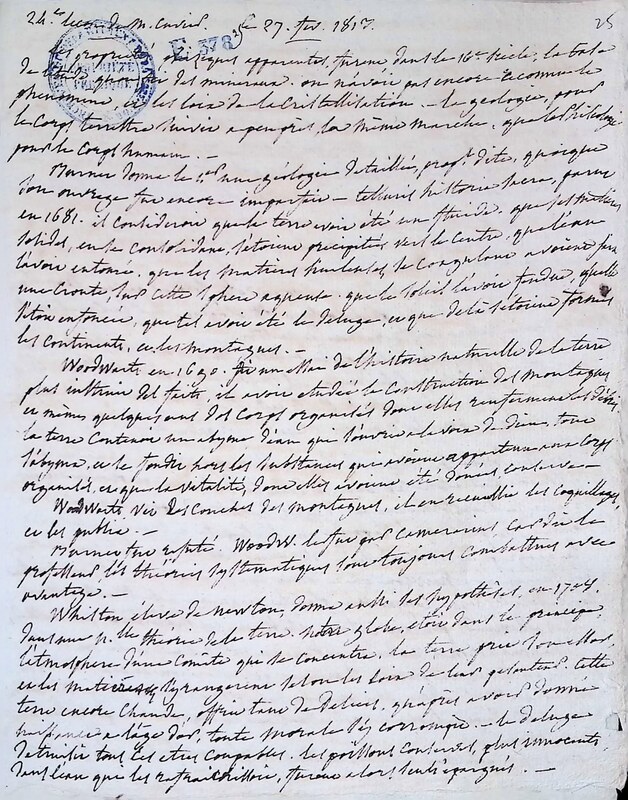 24e leçon de M. Cuvier. Le 27. fev. 1813.
25
E 378
Les propriétés physiques apparentes, furent dans le 16e siècle, la base
de l'étude des minéraux. on n'avoit pas encore reconnu le
phénomène, et les loix de la cristallisation. – la géologie, pour
le corps terrestre suivit à peu près la même marche, que la Phisiologie
pour le corps humain. –
Burnet donna le 1er une géologie détaillée, propt dite, quoique
son ouvrage fut encore imparfait – telluris historia sacra, parut
en 1681. il considéroit que la terre avoit été un fluide. que les matières
solides, en se consolidant, s'étoient précipités vers le centre, que l'eau
l'avoit entourée, que les matières huileuses, se coagulant avoient fait
une croute, sur cette sphère aqueuse, que le soleil l'avoit fondue, qu'elle
s'étoit entonnée, que tel avoit été le déluge, et que de là s'étoient formés
les continents, et les montagnes. –
WoodWart en 1690. fit un essai de l'histoire naturelle de la terre
plus instruit des faits, il avoit étudié la construction des montagnes
et mêmes quelques uns des corps organisés dont elles renferment les débris,
la terre contenoit un abyme d'eau qui s'ouvrit à la voix de dieu, tout
l'abyma, et se fondit hors les substances qui avoient appartenu aux corps
organisés, et que la vitalité, dont elles avoient été douées, conserva –
WoodWart vit des couches des montagnes, il en recueillit les coquillages,
et les publia. –
Burnet fut réfuté. WoodW. le fut par Camerarius, car dit le
professeur, les théories systématiques sont toujours combattues avec
avantage. –
Whiston élève de newton, donna aussi ses hypothèses, en 1708.
dans une nlle théorie de la terre. notre globe, étoit dans le principe
l'atmosphère d'une comète qui se concentra. la terre prit son ellipse
et les matières s'y rangèrent selon les loix de leur pesanteur. Cette
terre encore chaude, offrit tant de délices, qu'après avoir donné
naissance à l'âge d'or, toute morale s'y corrompit. – le déluge
détruisit tous les etres coupables. les poissons conservés, plus innocents,
dans l'eau que les rafraichissoit, furent alors seuls épargnés. –